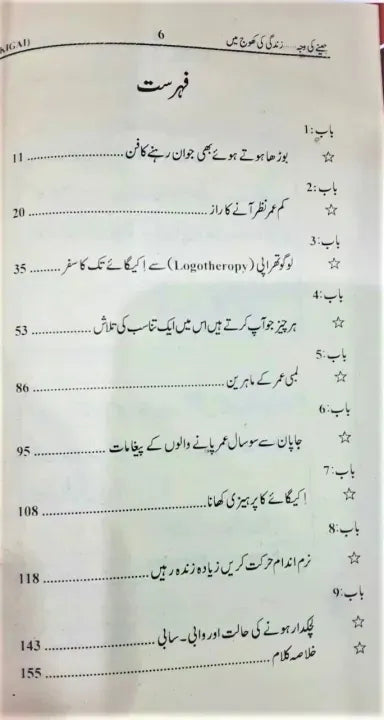 جینے کی وجہ.....زندگی کی کھوج میں 6 (IKIGAI
فہرست
باب:1
☆ بوڑھا ہوتے ہوئے بھی جوان رہنے کا فن.......................... 11
باب:2
☆ کم عمر نظر آنے کا راز.......................... 20
باب:3
☆ لوگوتھراپی (Logotheropy) سے اِکیگائے تک کا سفر......... 35
باب:4
☆ ہر چیز جو آپ کرتے ہیں اس میں ایک تناسب کی تلاش.............. 53
باب:5
☆ لمبی عمر کے ماہرین.......................... 86
باب:6
☆ جاپان سے سو سال عمر پانے والوں کے پیغامات.................. 95
باب:7
☆ اِکیگائے کا پرہیزی کھانا.......................... 108
باب:8
☆ نرم اندام حرکت کریں زیادہ زندہ رہیں.......................... 118
باب:9
☆ لچکدار ہونے کی حالت اور وابی۔سابی.................. 143
☆ خلاصہ کلام.......................... 155